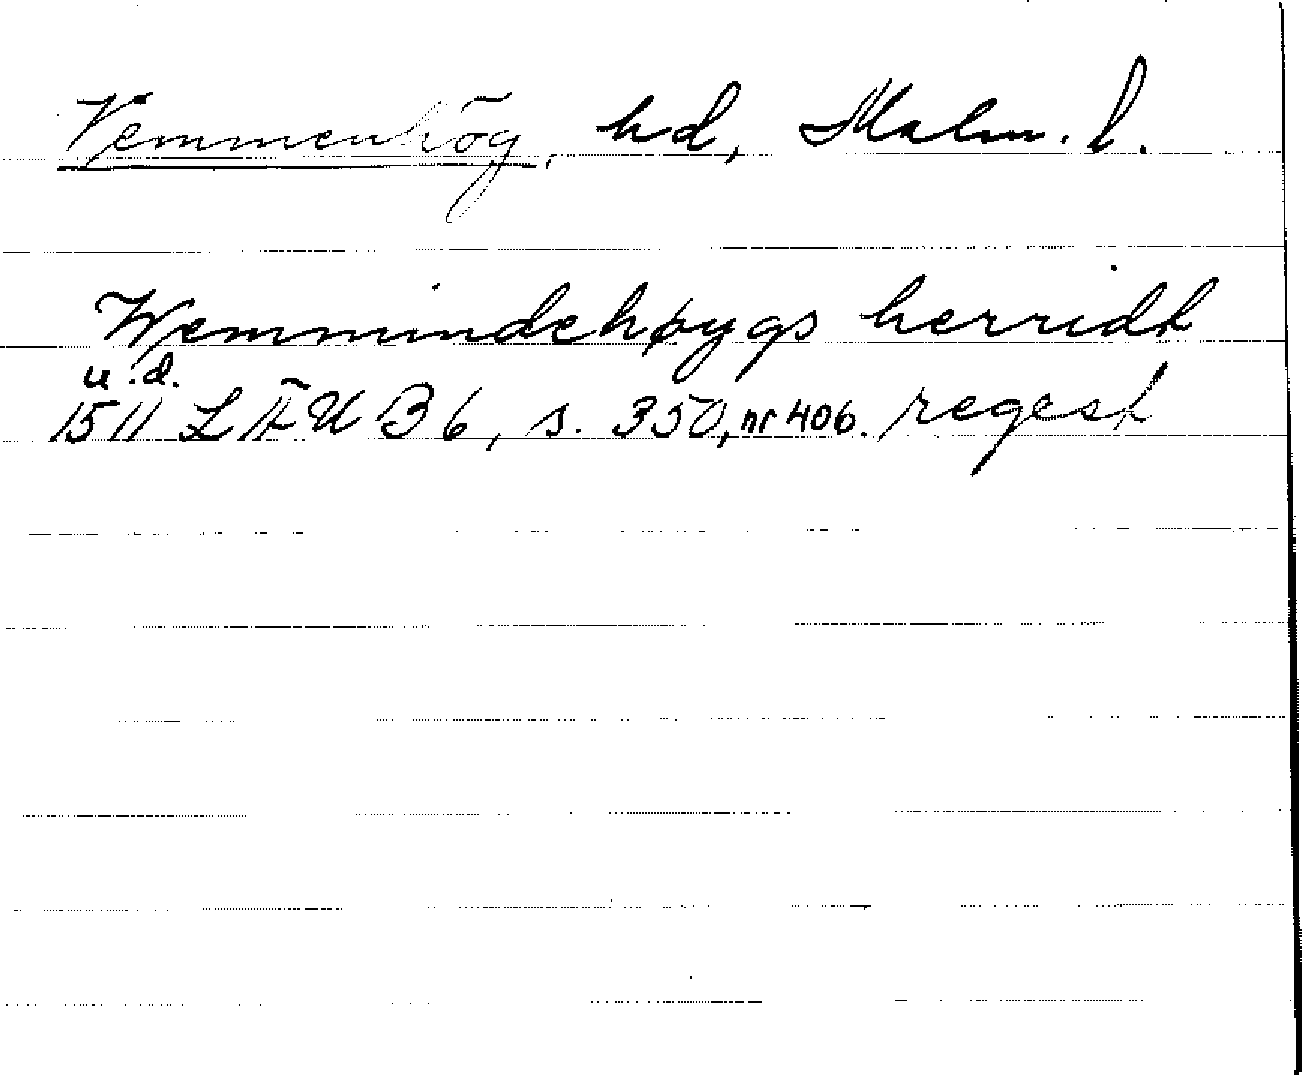 Vemmenhög, hd, Malm. l.
Wemmindehøygs herridt
u.d.
1511 LÄUB 6, s. 350, nr 406. regest